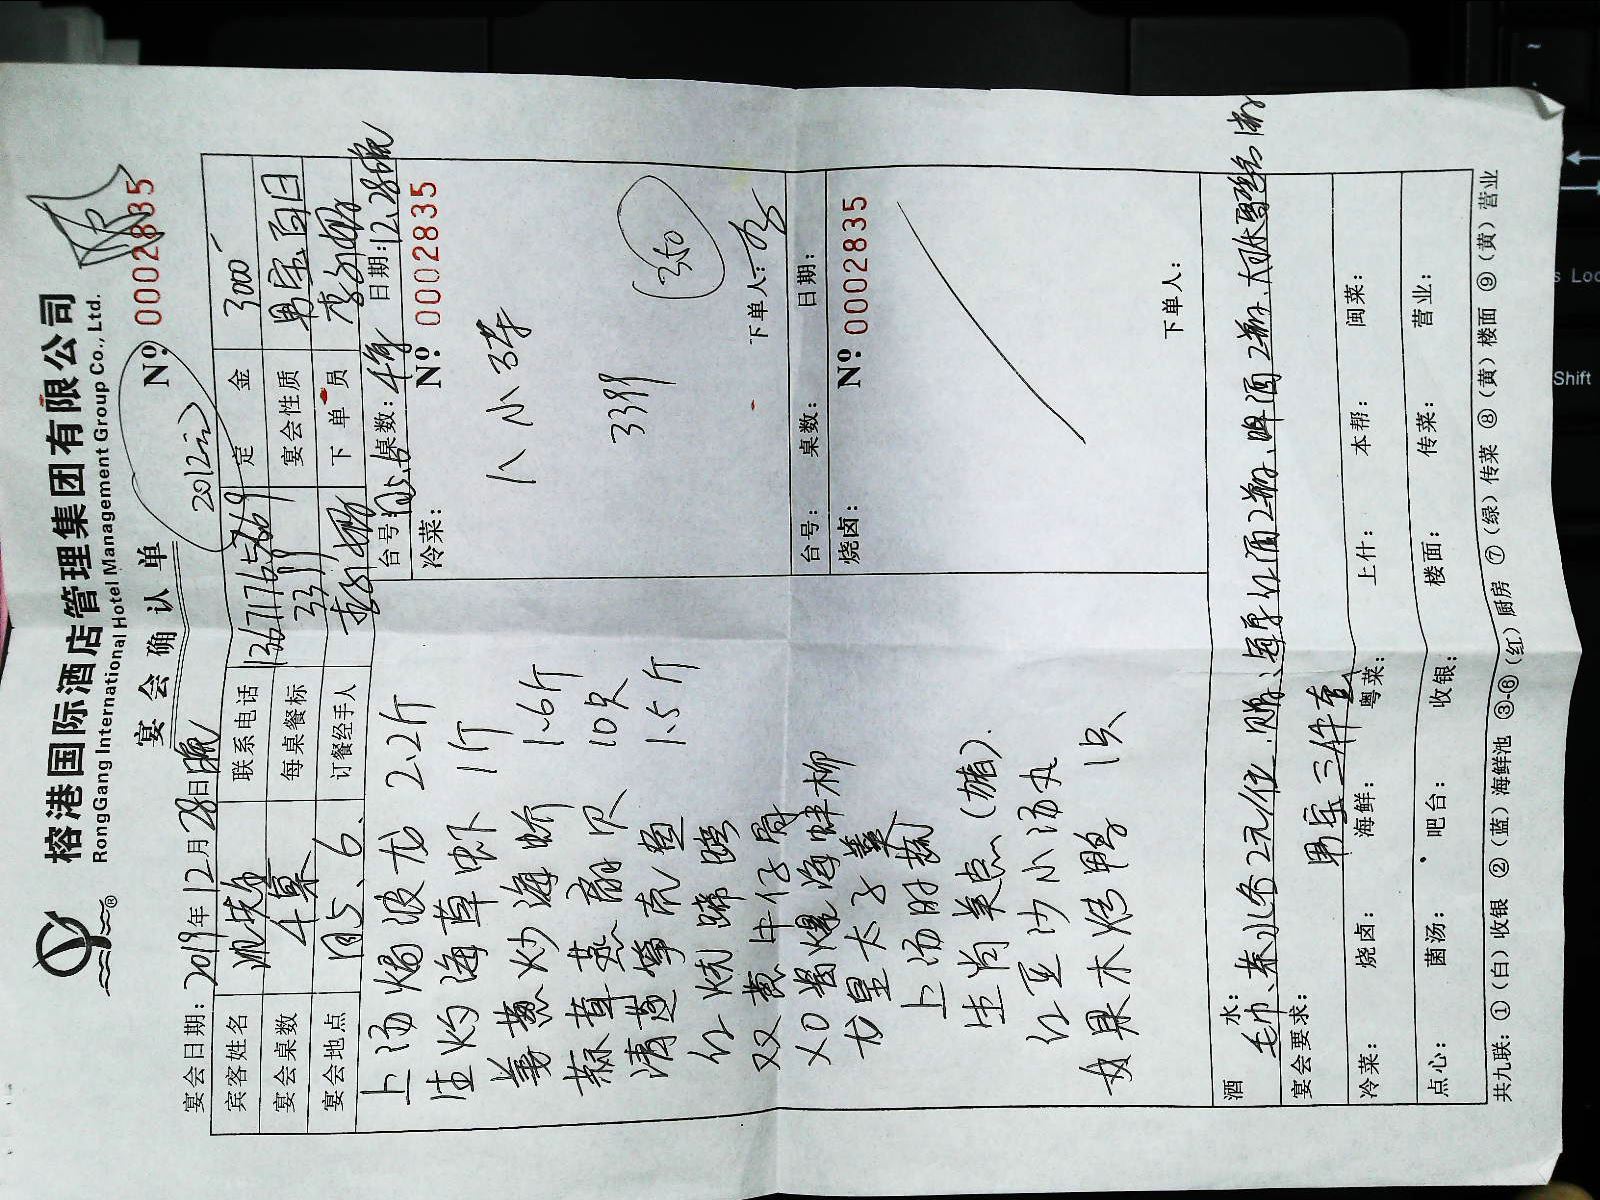 榕港国际酒店管理集团有限公司
RongGang International Hotel Management Group Co., Ltd.
宴会确认单
Nº 0002835
宴会日期：2019年12月28日晚
宾客姓名 联系电话 定金 3000
宴会桌数 4桌 每桌餐标 3399 宴会性质 男宝百日
宴会地点 订餐经手人 下单员
上汤焗波龙 2.2斤
生灼海草虾 1斤
姜葱炒海蚧 1.6斤
蒜茸蒸扇贝 10只
清蒸笋壳鱼 1.5斤
红烧蹄膀
双葱牛仔骨
XO酱爆海蚌柳
上汤时蔬
生尚美点(猪).
红豆沙小汤丸
果木烤鸭 1只
台号： 桌数：4桌 日期：12.28晚
冷菜：
Nº 0002835
八小碟
3399
350
下单人：
台号： 桌数： 日期：
烧卤：
Nº 0002835
下单人：
酒水：
毛巾、茶水各2元/位
宴会要求：
男宝三件套
冷菜： 烧卤： 海鲜： 粤菜： 上什： 本帮： 闽菜：
点心： 菌汤： 吧台： 收银： 楼面： 传菜： 营业：
共九联：①（白）收银 ②（蓝）海鲜池 ③-⑥（红）厨房 ⑦（绿）传菜 ⑧（黄）楼面 ⑨（黄）营业
Shift